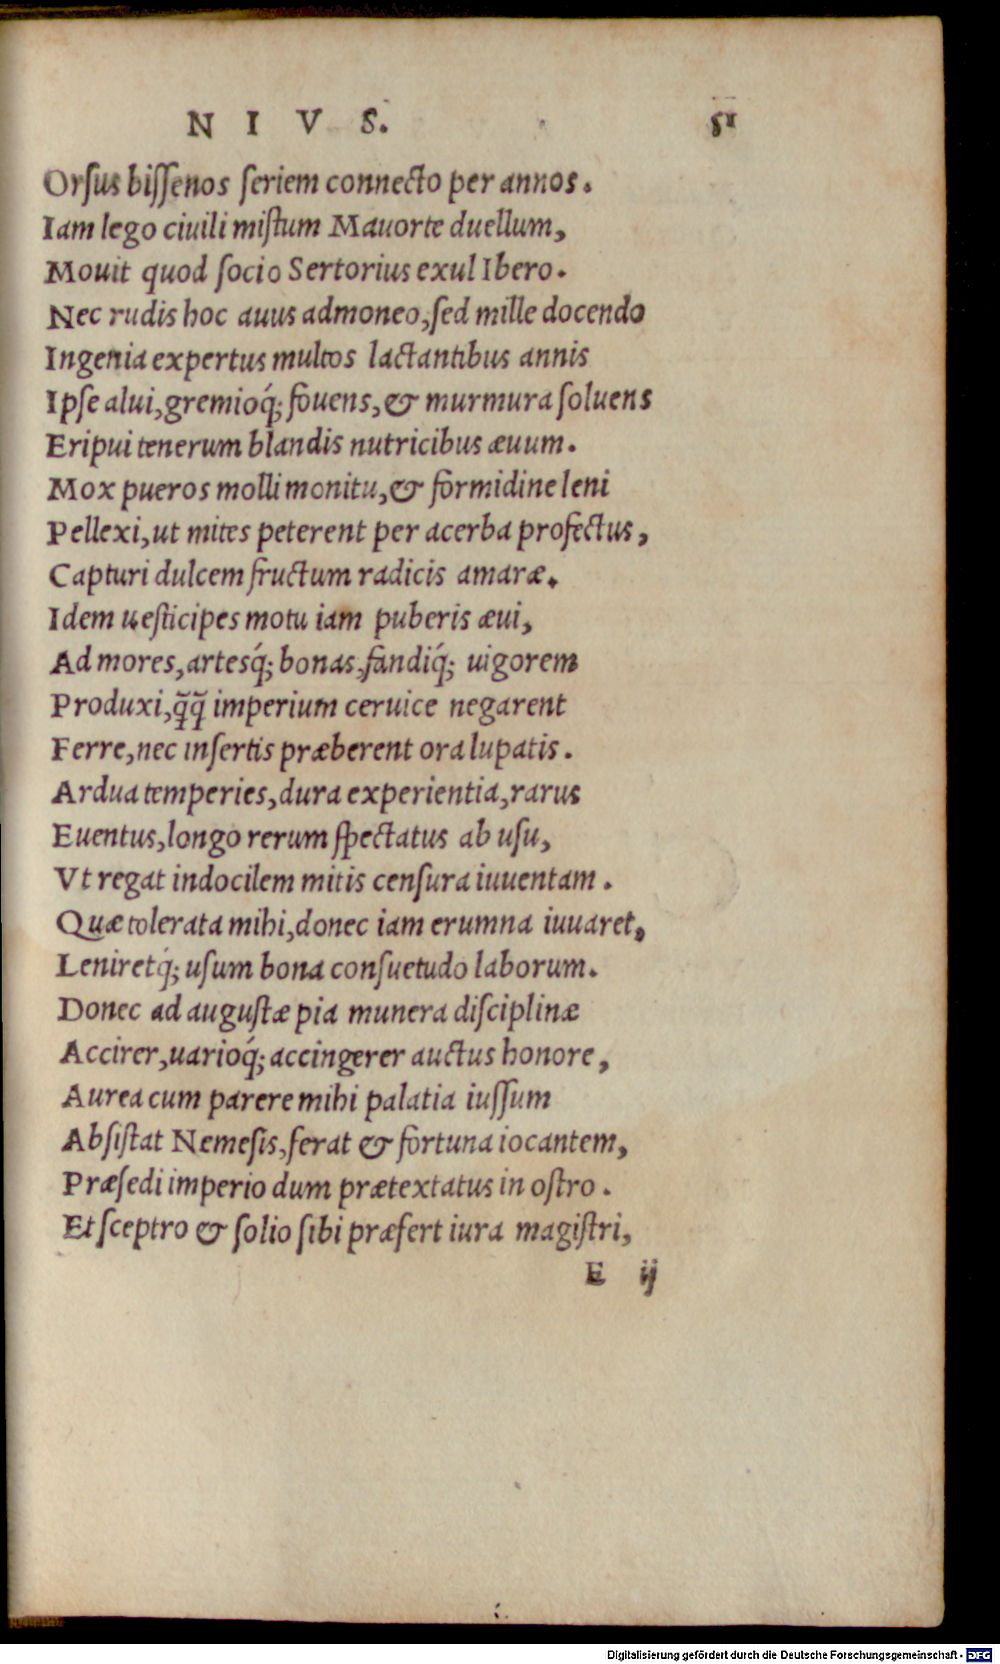 NIVS. 51
Orſus biſſenos ſeriem connecto per annos.
Iam lego ciuili miſtum Mauorte duellum,
Mouit quod ſocio Sertorius exul Ibero.
Nec rudis hoc auus admoneo, ſed mille docendo
Ingenia expertus multos lactantibus annis
Ipſe alui, gremioq́; fouens, & murmura ſoluens
Eripui tenerum blandis nutricibus æuum.
Mox pueros molli monitu, & formidine leni
Pellexi, ut mites peterent per acerba profectus,
Capturi dulcem fructum radicis amaræ.
Idem ueſticipes motu iam puberis æui,
Ad mores, artesq́; bonas, fandiq́; uigorem
Produxi, q̃q̃ imperium ceruice negarent
Ferre, nec inſertis præberent ora lupatis.
Ardua temperies, dura experientia, rarus
Euentus, longo rerum ſpectatus ab uſu,
Vt regat indocilem mitis cenſura iuuentam.
Quæ tolerata mihi, donec iam erumna iuuaret,
Leniretq́; uſum bona conſuetudo laborum.
Donec ad auguſtæ pia munera diſciplinæ
Accirer, uarioq́; accingerer auctus honore,
Aurea cum parere mihi palatia iuſſum
Abſiſtat Nemeſis, ferat & fortuna iocantem,
Præſedi imperio dum prætextatus in oſtro.
Et ſceptro & ſolio ſibi præfert iura magiſtri,
E ij
Digitalisierung gefördert durch die Deutsche Forschungsgemeinschaft - DFG